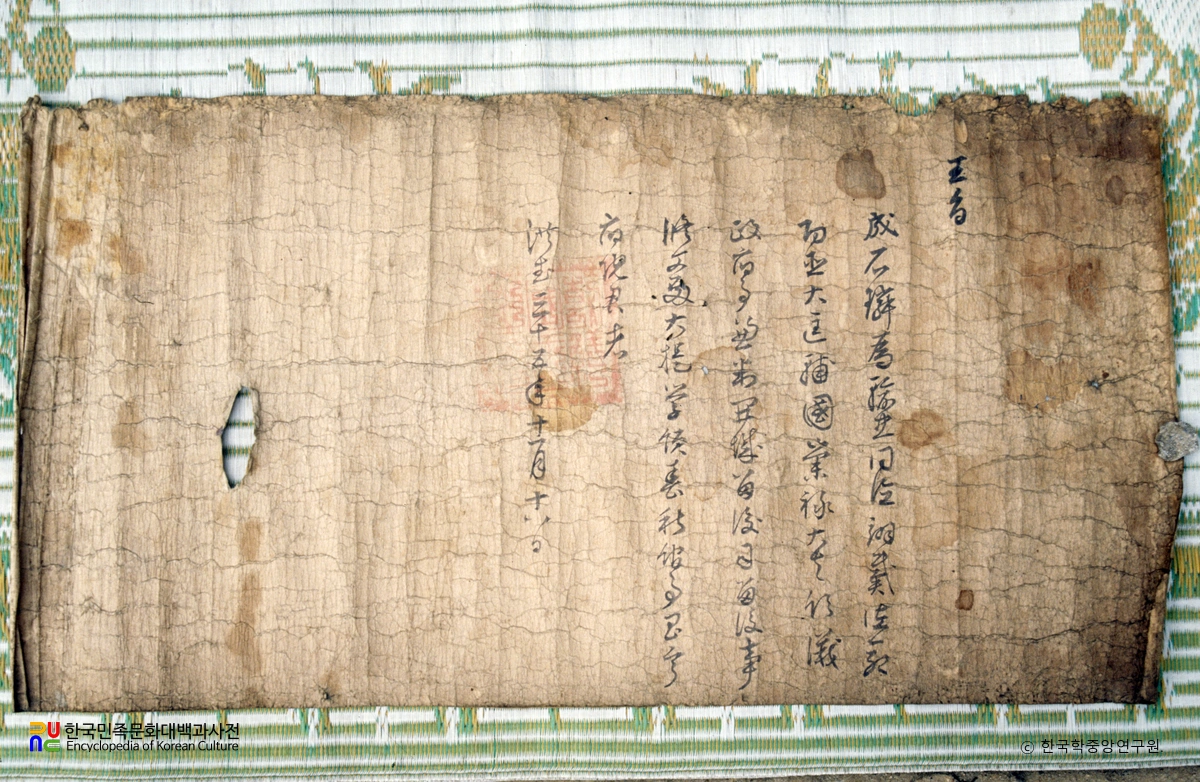 王旨
成石璘爲輸忠同德翊戴佐命
功臣大匡輔國崇祿大夫領議
政府事兼判開城留後司留後事
修文殿大提學領春秋館事昌寧
府院君者
洪武三十五年十一月十八日
한국민족문화대백과사전
Encyclopedia of Korean Culture
© 한국학중앙연구원